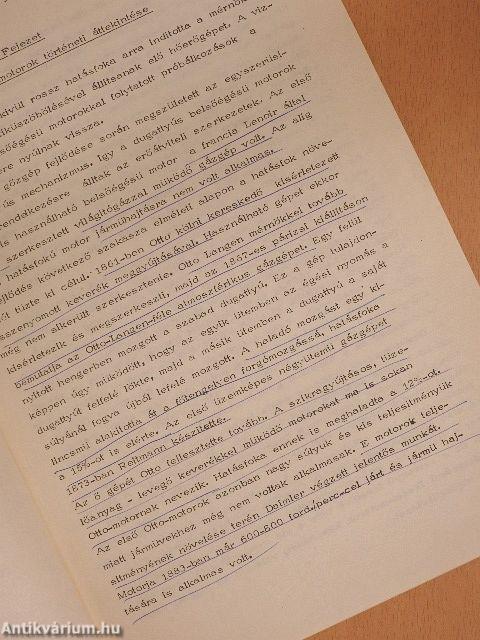 Fejezet
motorok történeti áttekintése
kívül rossz hatásfoka arra indította a mérnök
küszöbölésével állítsanak elő hőerőgépet. A víz-
sőégésű motorokkal folytatott próbálkozások a
re nyúlnak vissza.
gőzgép fejlődése során megszületett az egyszerűsí-
ús mechanizmus. Így a dugattyús belsőégésű motorok
rendelkezésre álltak az erőátviteli szerkezetek. Az első
is használható belsőégésű motor a francia Lenoir által
szerkesztett világítógázzal működő gázgép volt. Az alig
hatásfokú motor járműhajtásra nem volt alkalmas.
ejlődés következő szakasza elméleti alapon a hatásfok növe-
ét tűzte ki célul. 1861-ben Otto kölni kereskedő kísérletezett
sszenyomott keverék meggyújtásával. Használható gépet ekkor
még nem sikerült szerkesztenie. Otto Langen mérnökkel tovább
kísérletezik és megszerkeszti, majd az 1867-es párizsi kiállításon
bemutatja az Otto-Langen-féle atmoszférikus gázgépet. Egy felül
nyitott hengerben mozgott a szabad dugattyú. Ez a gép tulajdon-
képpen úgy működött, hogy az egyik ütemben az égési nyomás a
dugattyút felfelé lökte, majd a másik ütemben a dugattyú a saját
súlyánál fogva újból lefelé mozgott. A haladó mozgást egy ki-
lincsmű alakította át a főtengelyen forgómozgássá, hatásfoka
a 15%-ot is elérte. Az első üzemképes négyütemű gázgépet
1873-ban Reitmann készítette.
Az ő gépét Otto fejlesztette tovább. A szikragyújtásos, tüze-
lőanyag - levegő keverékkel működő motorokat ma is sokan
Otto-motornak nevezik. Hatásfoka ennek is meghaladta a 12%-ot.
Az első Otto-motorok azonban nagy súlyuk és kis teljesítményük
miatt járművekhez még nem voltak alkalmasak. E motorok telje-
sítményének növelése terén Daimler végzett jelentős munkát.
Motorja 1883-ban már 600-800 ford./perc-cel járt és jármű haj-
tására is alkalmas volt.
Antikvárium.hu